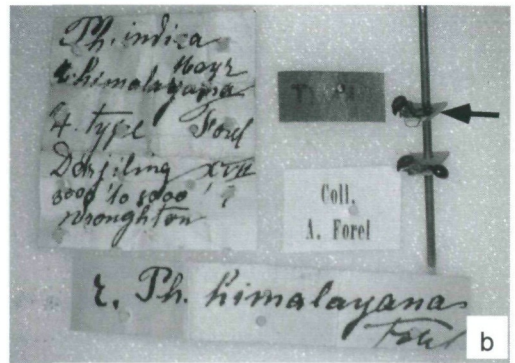 Ph. indica
Mayr
r. himalayana
♀. type Forel
Darjiling XVII
3000' to 5000'
Wroughton
Coll.
A. Forel
r. Ph. himalayana
Forel
b